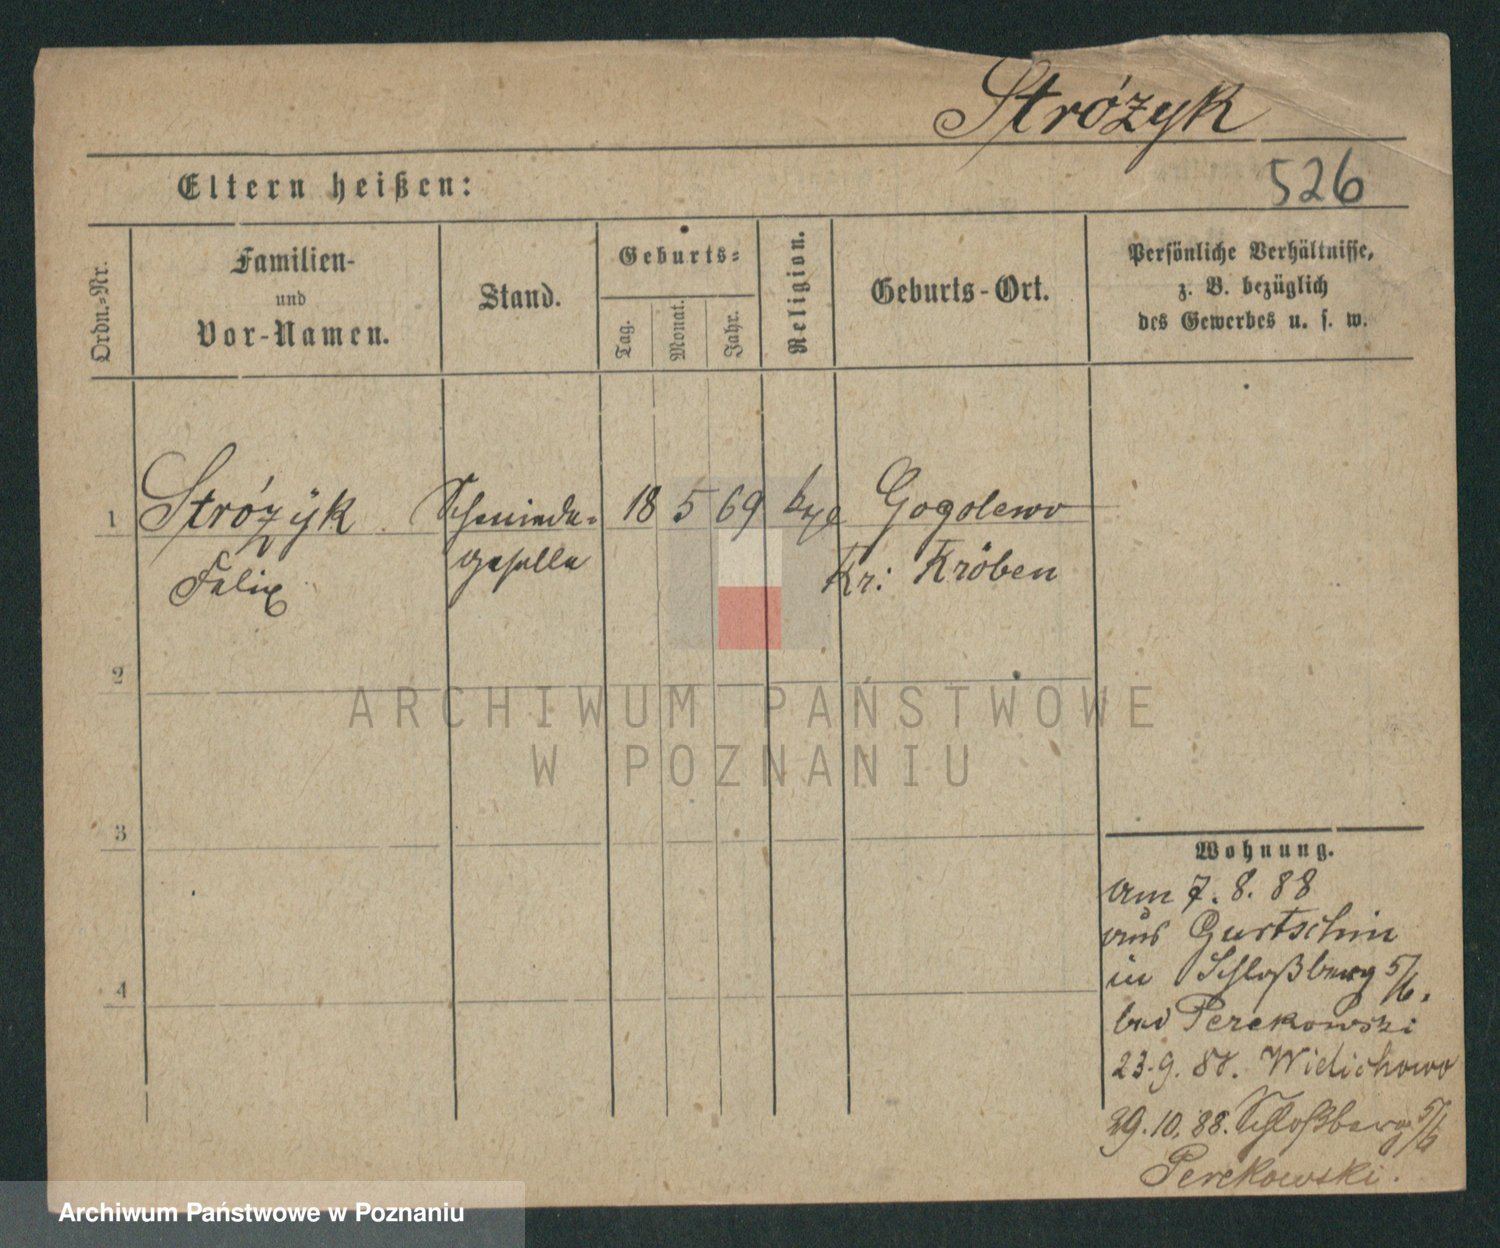 Stróżyk
526
Eltern heißen:
Ordn.=Nr.
Familien-
und
Vor-Namen.
Stand.
Geburts=
Tag.
Monat.
Jahr.
Religion.
Geburts-Ort.
Persönliche Verhältnisse,
z. B. bezüglich
des Gewerbes u. s. w.
1 Stróżÿk Schmiede- 18 5 69 Gogolewo
Felix geselle Kr: Kröben
2
3
4
ARCHIWUM PAŃSTWOWE
W POZNANIU
Wohnung.
am 7. 8. 88
aus Gurtschin
in Schloßberg 5/6.
bei Perekowski
23.9. 88. Widichowo
29.10.88. Schloßberg 5/6
Perekowski.
Archiwum Państwowe w Poznaniu